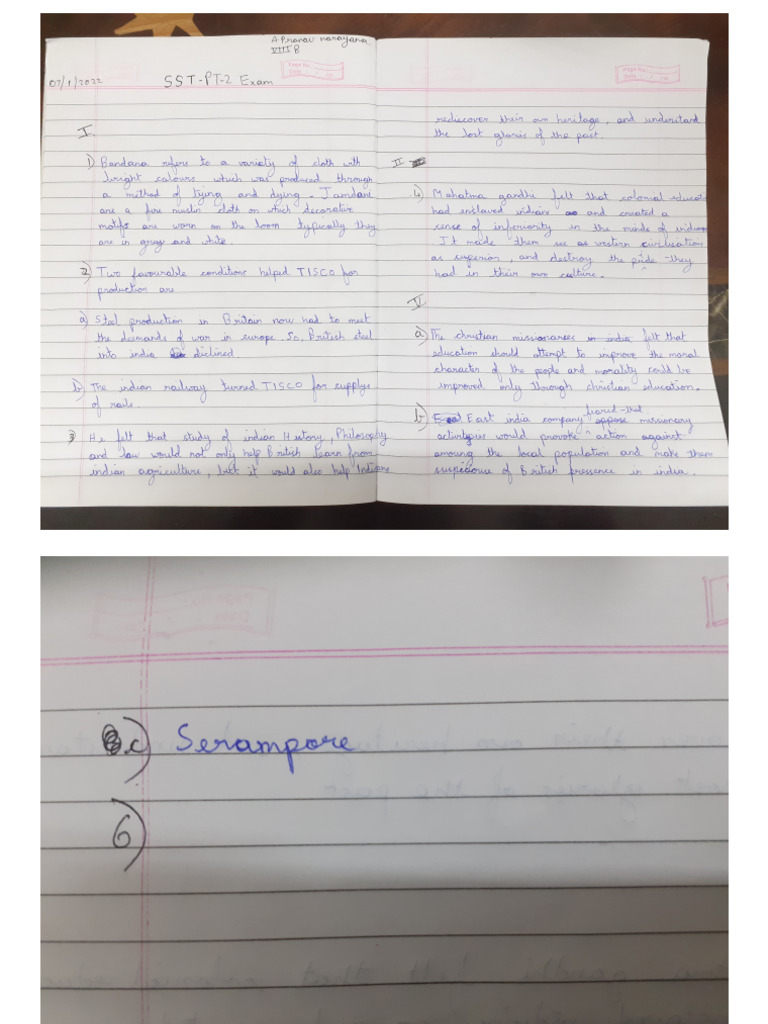 A. Pranav narayana
VIII B
07/1/2022
SST-PT-2 Exam
Page No.
Date
I.
1) Bandana refers to a variety of cloth with
bright colours which was produced through
a method of tying and dying. Jamdani
are a fine muslin cloth on which decorative
motifs are worn on the loom typically they
are in gray and white.
2) Two favourable conditions helped TISCO for
production are
a) Steel production in Britain now had to meet
the demands of war in europe. So, British steel
into india diclined.
b) The indian railway turned TISCO for supplys
of rails.
3 He felt that study of indian History, Philosophy
and law would not only help British learn from
indian agriculture, but it would also help Indians
Page No.
Date
rediscover their own heritage, and understand
the lost glories of the past.
II
4) Mahatma gandhi felt that colonial educati
had enslaved indians and created a
sense of inferiority in the minds of indians
It made them see as western civilisation
as superior, and destroy the pride they
had in their own culture.
V
a) The christian missionaries in india felt that
education should attempt to improve the moral
character of the people and morality could be
improved only through christian education.
b) East india company feared that missionary
activities would provoke action against
among the local population and make them
suspecious of British pressence in india.
c) Serampore
6)